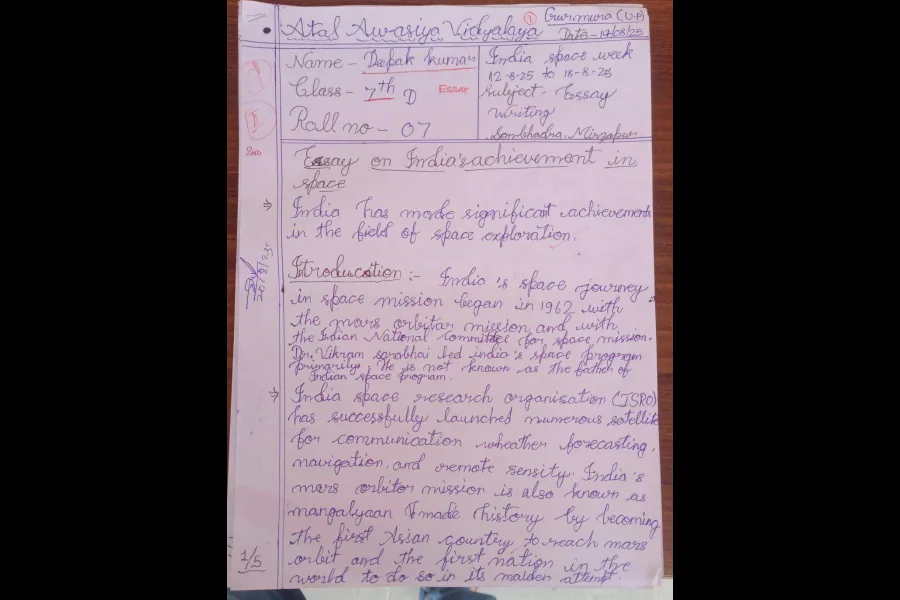 Atal Awasiya Vidyalaya
1
Gurmura (U.P)
Date - 17/08/25
Name - Deepak kumar
Class - 7th D
ESSAY
Roll no - 07
India space week
12-8-25 to 18-8-25
Subject - Essay
writing
Sonbhadra, Mirzapur
2ND
Essay on India's achievement in
space
India has made significat achievements
in the field of space exploration.
20/8/25
Itroducation :- India's space journey
in space mission began in 1962 with
the mars orbitar mission and with
the Indian National Committee for space mission.
Dr. Vikram sarabhai led india's space program
He is not known as the father of
Indian space program.
India space research organisation (ISRO)
has successfully launched numerous satellite
for communication wheather forecasting,
navigation, and remote sensity. India's
mars orbitor mission is also known as
mangalyaan made history by becoming
the first Assian country to reach mars
orbit and the first nation in the
world to do so in its maiden attempt.
1/5